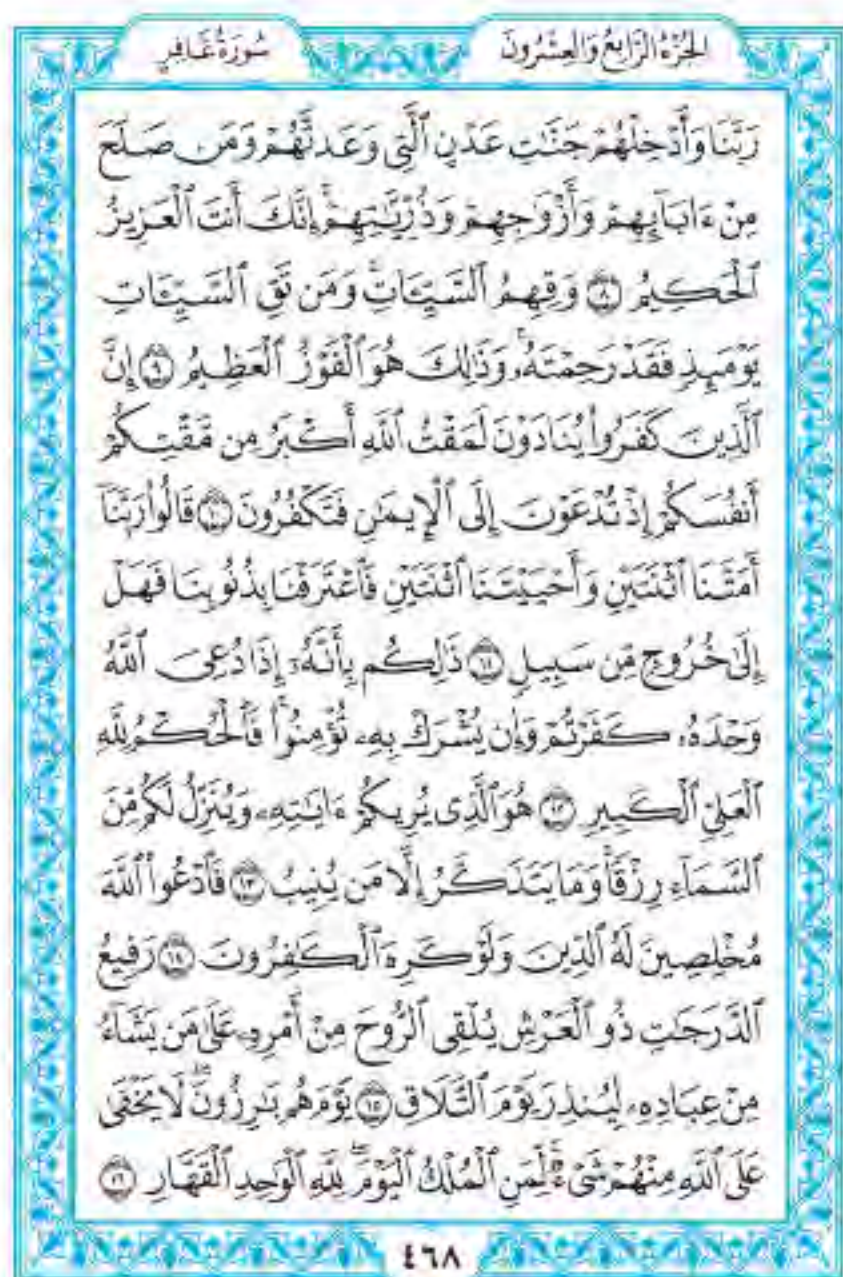 سُورَةُ غَافِرٍ
الجُزْءُ الرَّابِعُ وَالعِشْرُونَ
رَبَّنَا وَأَدْخِلْهُمْ جَنَّٰتِ عَدْنٍ ٱلَّتِى وَعَدتَّهُمْ وَمَن صَلَحَ
مِنْ ءَابَآئِهِمْ وَأَزْوَٰجِهِمْ وَذُرِّيَّٰتِهِمْ ۚ إِنَّكَ أَنتَ ٱلْعَزِيزُ
ٱلْحَكِيمُ ٨ وَقِهِمُ ٱلسَّيِّـَٔاتِ ۚ وَمَن تَقِ ٱلسَّيِّـَٔاتِ
يَوْمَئِذٍ فَقَدْ رَحِمْتَهُۥ ۚ وَذَٰلِكَ هُوَ ٱلْفَوْزُ ٱلْعَظِيمُ ٩ إِنَّ
ٱلَّذِينَ كَفَرُوا۟ يُنَادَوْنَ لَمَقْتُ ٱللَّهِ أَكْبَرُ مِن مَّقْتِكُمْ
أَنفُسَكُمْ إِذْ تُدْعَوْنَ إِلَى ٱلْإِيمَٰنِ فَتَكْفُرُونَ ١٠ قَالُوا۟ رَبَّنَآ
أَمَتَّنَا ٱثْنَتَيْنِ وَأَحْيَيْتَنَا ٱثْنَتَيْنِ فَٱعْتَرَفْنَا بِذُنُوبِنَا فَهَلْ
إِلَىٰ خُرُوجٍ مِّن سَبِيلٍ ١١ ذَٰلِكُم بِأَنَّهُۥٓ إِذَا دُعِىَ ٱللَّهُ
وَحْدَهُۥ كَفَرْتُمْ وَإِن يُشْرَكْ بِهِۦ تُؤْمِنُوا۟ ۚ فَٱلْحُكْمُ لِلَّهِ
ٱلْعَلِىِّ ٱلْكَبِيرِ ١٢ هُوَ ٱلَّذِى يُرِيكُمْ ءَايَٰتِهِۦ وَيُنَزِّلُ لَكُم مِّنَ
ٱلسَّمَآءِ رِزْقًا ۚ وَمَا يَتَذَكَّرُ إِلَّا مَن يُنِيبُ ١٣ فَٱدْعُوا۟ ٱللَّهَ
مُخْلِصِينَ لَهُ ٱلدِّينَ وَلَوْ كَرِهَ ٱلْكَٰفِرُونَ ١٤ رَفِيعُ
ٱلدَّرَجَٰتِ ذُو ٱلْعَرْشِ يُلْقِى ٱلرُّوحَ مِنْ أَمْرِهِۦ عَلَىٰ مَن يَشَآءُ
مِنْ عِبَادِهِۦ لِيُنذِرَ يَوْمَ ٱلتَّلَاقِ ١٥ يَوْمَ هُم بَٰرِزُونَ ۖ لَا يَخْفَىٰ
عَلَى ٱللَّهِ مِنْهُمْ شَىْءٌ ۚ لِّمَنِ ٱلْمُلْكُ ٱلْيَوْمَ ۖ لِلَّهِ ٱلْوَٰحِدِ ٱلْقَهَّارِ ١٦
٤٦٨